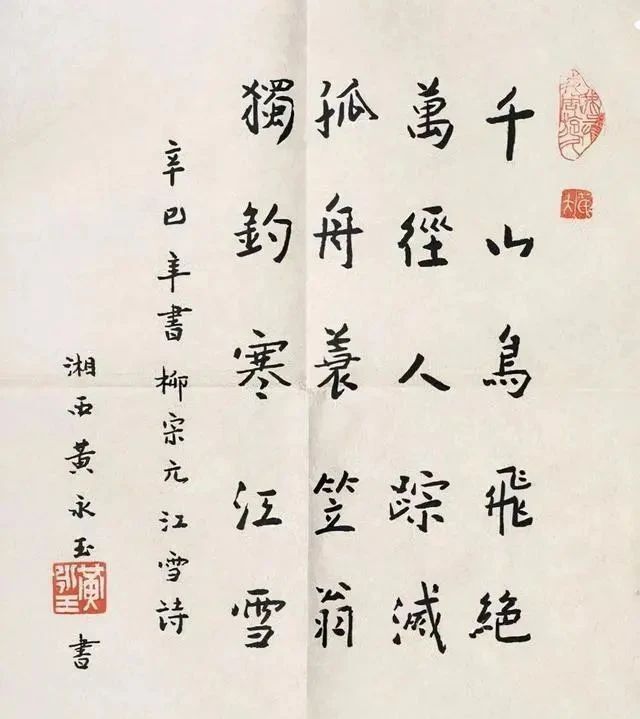 千山鳥飛絕
萬徑人踪滅
孤舟蓑笠翁
獨釣寒江雪
辛巳年書柳宗元江雪詩
湘西黃永玉書
黃永玉